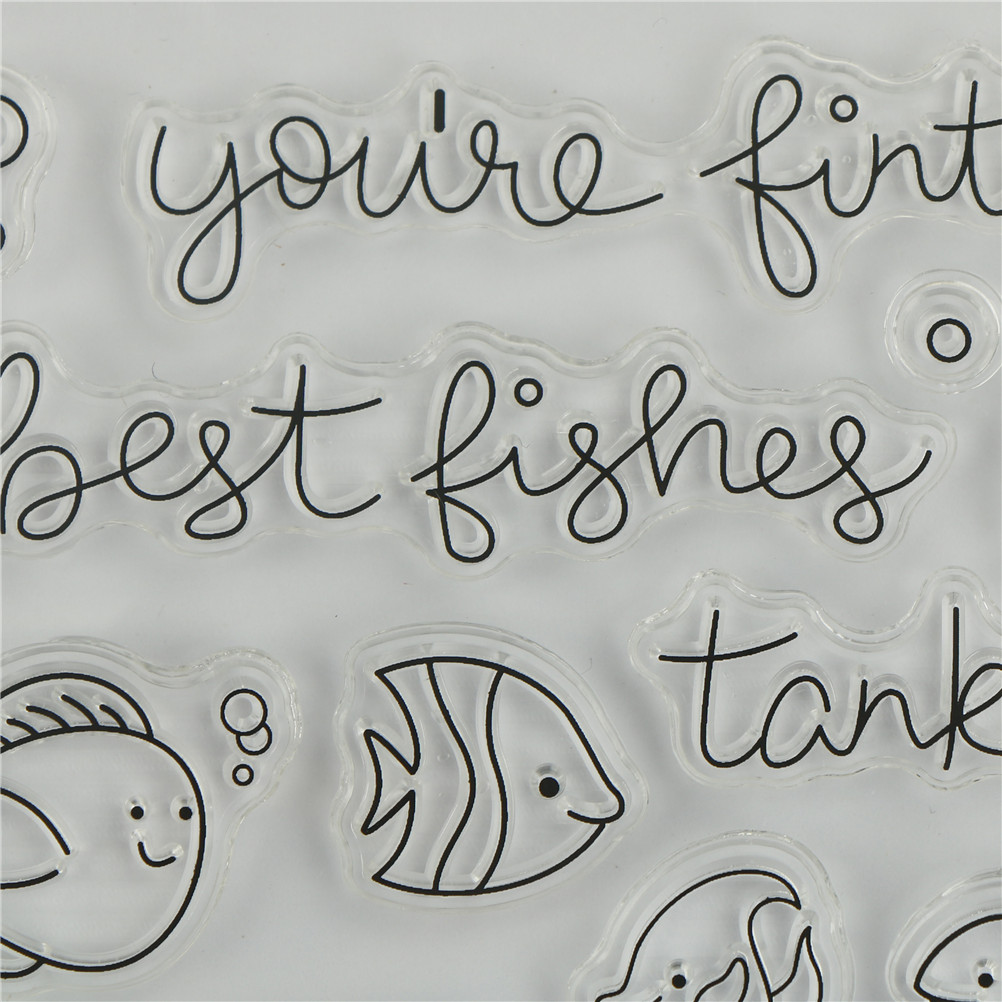 you're fint
best fishes
tank